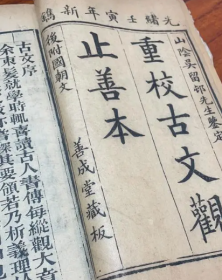 光緒壬寅年新鐫
山陰吳留邨先生鑒定
重校古文觀
止善本
後附國朝文
善成堂藏板
古文序
余束髮就學時輒喜讀古人書傳每縱觀大意
其要領若乃析義理